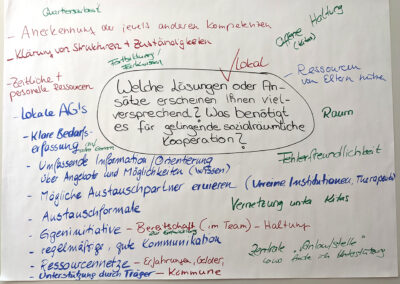 Quartiersarbeit
- Anerkennung der jeweils anderen Kompetenzen
Offene Haltung
(Kitas)
- Klärung von Strukturen + Zuständigkeiten
Fortbildung/
Lokal
- Zeitliche +
personelle Ressourcen
- Ressourcen
von Eltern nutzen
Welche Lösungen oder An-
sätze erscheinen Ihnen viel-
versprechend? Was benötigt
es für gelingende sozialräumliche
Kooperation?
- Lokale AG's
Raum
- Klare Bedarfs-
erfassung
Fehlerfreundlichkeit
- Umfassende Information/Orientierung
über Angebote und Möglichkeiten (Wissen)
- Mögliche Austauschpartner eruieren (Vereine, Institutionen, Therapeuten)
- Austauschformate
Vernetzung unter Kitas
- Eigeninitiative - Bereitschaft (im Team) - Haltung
- regelmäßige, gute Kommunikation
Zentrale "Anlaufstelle"
- Ressourcennetze - Erfahrungen, Gelder,
- Unterstützung durch Träger - Kommune